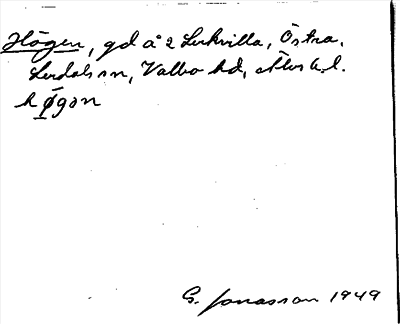 Högen, gd å 2 Lerkvilla, Östra.
Lerdals sn, Valbo hd, Älvsb. l.
hǿgən
G. Jonasson 1949